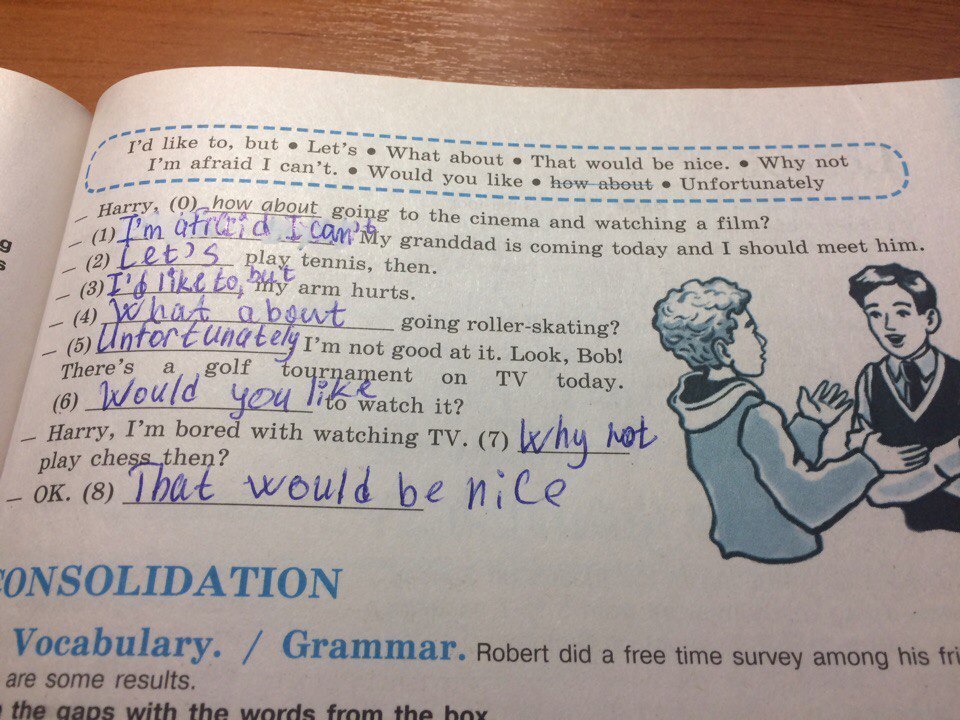 I'd like to, but • Let's • What about • That would be nice. • Why not
I'm afraid I can't. • Would you like • how about • Unfortunately
– Harry, (0) how about going to the cinema and watching a film?
– (1) I'm afraid I can't My granddad is coming today and I should meet him.
– (2) Let's play tennis, then.
– (3) I'd like to, but my arm hurts.
– (4) What about going roller-skating?
– (5) Unfortunately I'm not good at it. Look, Bob!
There's a golf tournament on TV today.
(6) Would you like to watch it?
– Harry, I'm bored with watching TV. (7) Why not
play chess then?
– OK. (8) That would be nice
CONSOLIDATION
Vocabulary. / Grammar. Robert did a free time survey among his fri
are some results.
the gaps with the words from the box